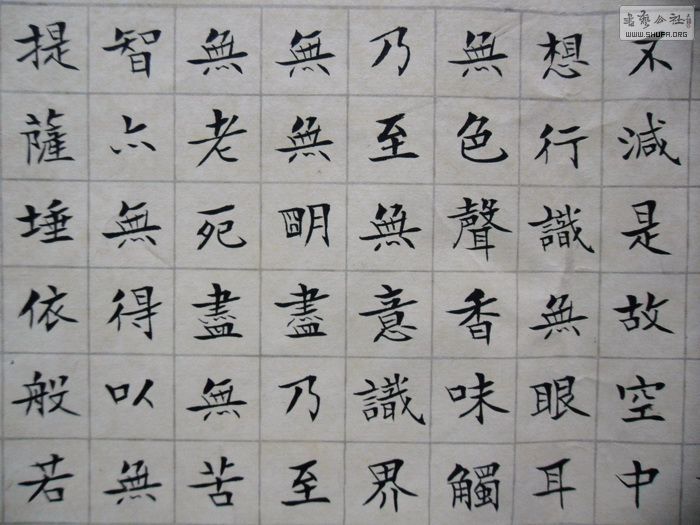 不減是故空中
想行識無眼耳
無色聲香味觸
乃至無意識界
無無明盡乃至
無老死盡無苦
智亦無得以無
提薩埵依般若
书艺公社
WWW.SHUFA.ORG